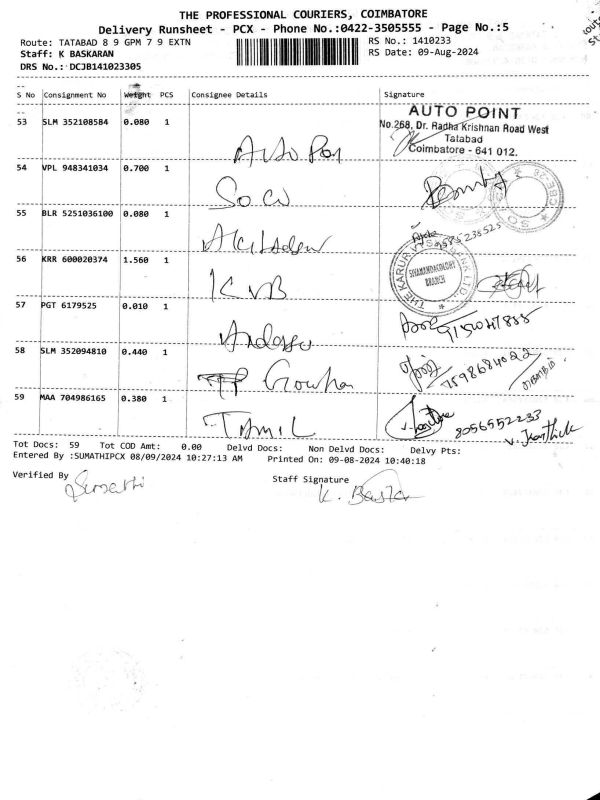 THE PROFESSIONAL COURIERS, COIMBATORE
Delivery Runsheet - PCX - Phone No.:0422-3505555 - Page No.:5
Route: TATABAD 8 9 GPM 7 9 EXTN
RS No.: 1410233
Staff: K BASKARAN
RS Date: 09-Aug-2024
DRS No.: DCJB141023305
S No Consignment No Weight PCS Consignee Details Signature
53 SLM 352108584 0.080 1
AUTO POINT
No.268, Dr. Radha Krishnan Road West
Tatabad
Coimbatore - 641 012.
54 VPL 948341034 0.700 1
55 BLR 5251036100 0.080 1
56 KRR 600020374 1.560 1
KVB
THE KARUR VYSYA BANK LTD.
SIVANANDACOLONY
BRANCH
57 PGT 6179525 0.010 1
58 SLM 352094810 0.440 1
7598684022
59 MAA 704986165 0.380 1
TAMIL
8056552233
V. Karthick
Tot Docs: 59 Tot COD Amt: 0.00 Delvd Docs: Non Delvd Docs: Delvy Pts:
Entered By :SUMATHIPCX 08/09/2024 10:27:13 AM Printed On: 09-08-2024 10:40:18
Verified By
Staff Signature
Sumathi
K. Baskar